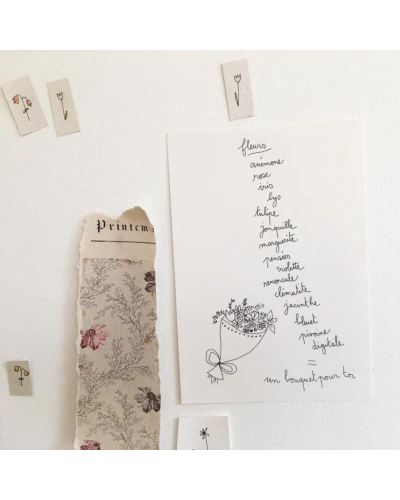 Printem
fleurs
anémone
rose
iris
lys
tulipe
jonquille
marguerite
pensées
violette
renoncule
clématite
jacinthe
bleuet
pivoine
digitale
=
un bouquet pour toi